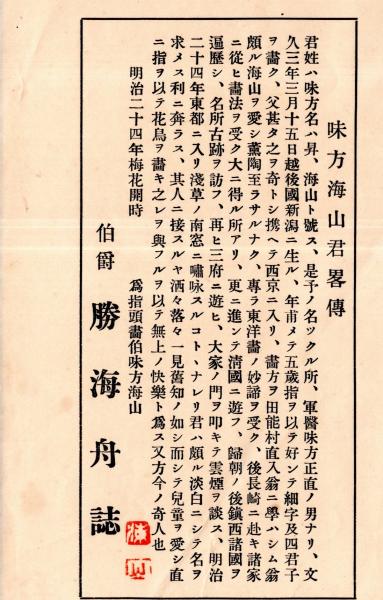 味方海山君畧傳
君姓ハ味方名ハ昇、海山ト號ス、是予ノ名ックル所、軍醫味方正直ノ男ナリ、文
久三年三月十五日越後國新潟ニ生ル、年甫メテ五歳指ヲ以テ好ンテ細字及四君子
ヲ畵ク、父甚タ之ヲ奇トシ携ヘテ西京ニ入リ、畵方ヲ田能村直入翁ニ學ハシム翁
頗ル海山ヲ愛シ薫陶至ラサルナク、專ラ東洋畵ノ妙諦ヲ受ク、後長崎ニ赴キ諸家
ニ從ヒ畵法ヲ受ク大ニ得ル所アリ、更ニ進ンテ清國ニ遊フ、歸朝ノ後鎭西諸國ヲ
遍歷シ、名所古跡ヲ訪フ、再ヒ三府ニ遊ヒ、大家ノ門ヲ叩キテ雲煙ヲ談ス、明治
二十四年東都ニ入リ淺草ノ南窓ニ嘯咏スルコト、ナレリ君ハ頗ル淡白ニシテ名ヲ
求メス利ニ奔ラス、其人ニ接スルヤ洒々落々一見舊知ノ如シ而シテ兒童ヲ愛シ直
ニ指ヲ以テ花鳥ヲ畵キ之レヲ與フルヲ以テ無上ノ快樂ト爲ス又方今ノ奇人也
明治二十四年梅花開時
爲指頭畵伯味方海山
伯爵 勝海舟誌